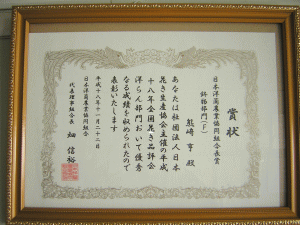 賞状
日本洋蘭農業協同組合長賞
鉢物部門(F)
熊崎 亨 殿
あなたは社団法人日本
花き生産協会主催の平成
十八年全国花き品評会
洋らん部門において優秀
なる成績を収められたので
表彰いたします
平成十八年十一月二十二日
日本洋蘭農業協同組合
代表理事組合長 畑 信裕